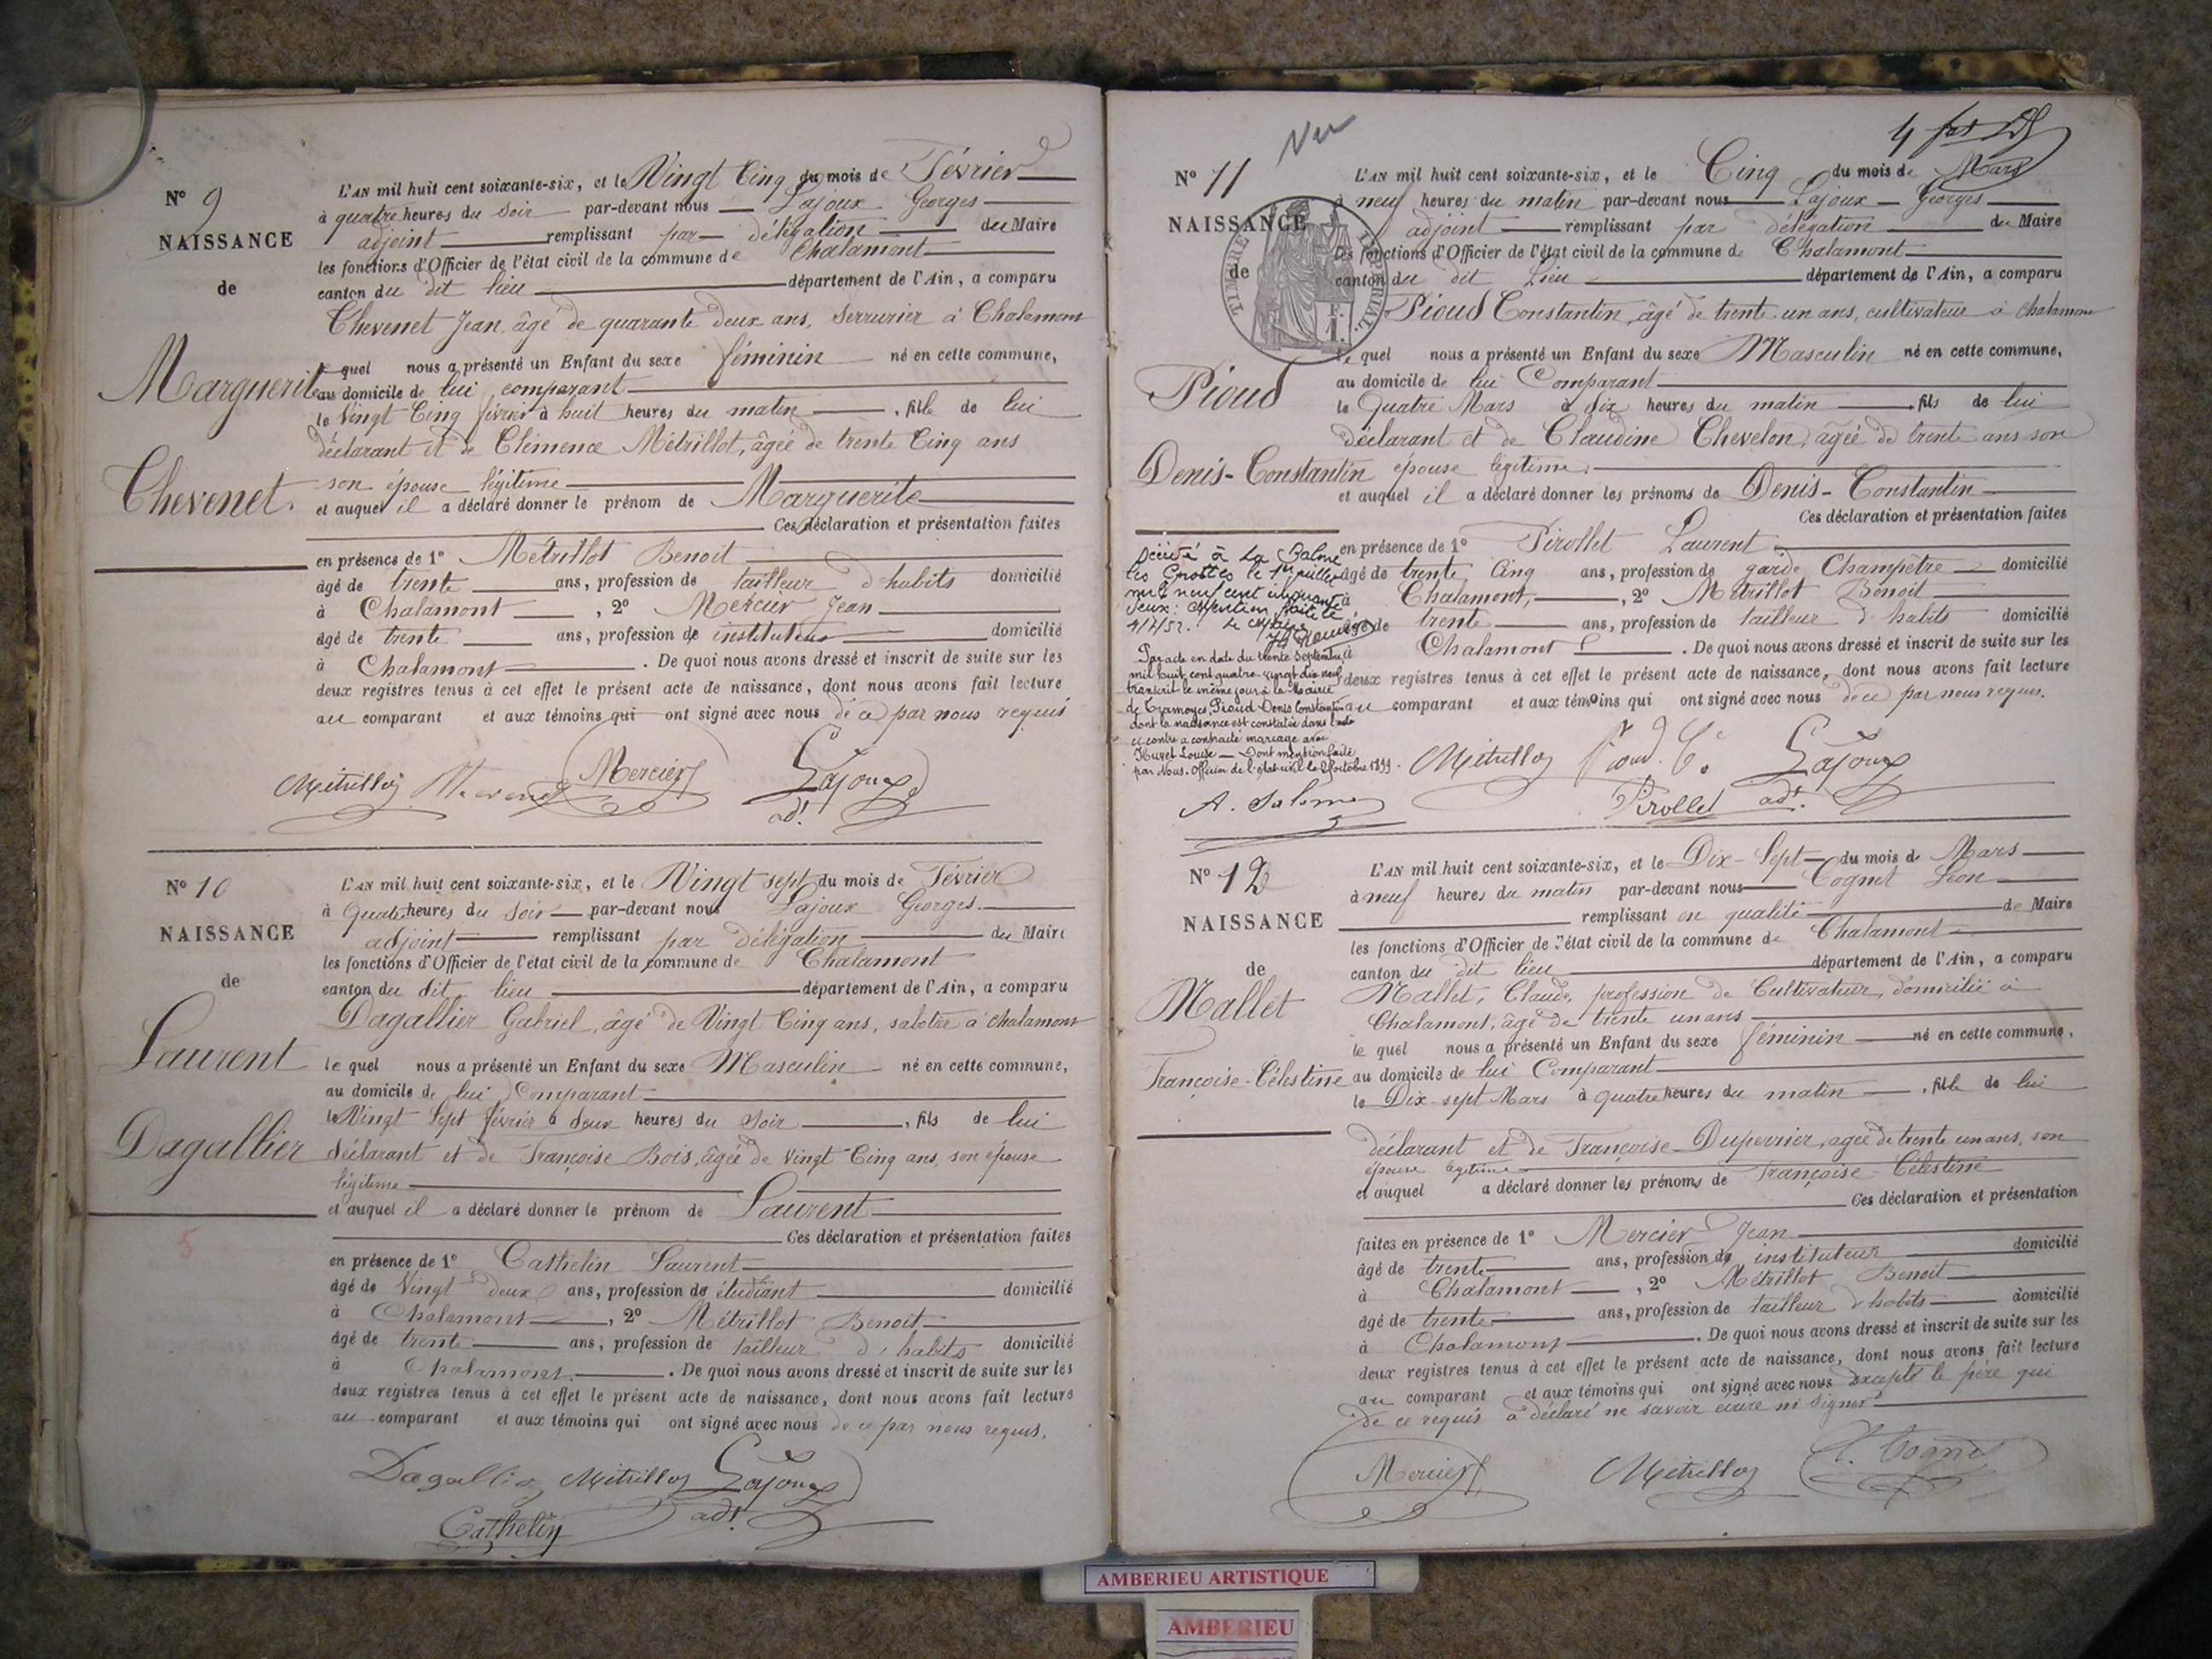 Nº 9
NAISSANCE
de
Marguerite
Chevenet.
L'AN mil huit cent soixante-six, et le Vingt Cinq du mois de Février
à quatre heures du soir par-devant nous Lajoux Georges
adjoint remplissant par délégation du Maire
les fonctions d'Officier de l'état civil de la commune de Chalamont
canton du dit lieu département de l'Ain, a comparu
Chevenet Jean, âgé de quarante deux ans, Serrurier à Chalamont
le quel nous a présenté un Enfant du sexe féminin né en cette commune,
au domicile de lui comparant
le Vingt Cinq février à huit heures du matin, fille de lui
déclarant et de Clémence Métrillot, âgée de trente Cinq ans
son épouse légitime
et auquel il a déclaré donner le prénom de Marguerite
Ces déclaration et présentation faites
en présence de 1º Métrillot Benoit
âgé de trente ans, profession de tailleur d'habits domicilié
à Chalamont, 2º Mercier Jean
âgé de trente ans, profession de instituteur domicilié
à Chalamont. De quoi nous avons dressé et inscrit de suite sur les
deux registres tenus à cet effet le présent acte de naissance, dont nous avons fait lecture
au comparant et aux témoins qui ont signé avec nous de ce par nous requis
Métrillot Chevenet Mercier Lajoux
adt
Nº 10
NAISSANCE
de
Laurent
Dagallier
L'AN mil huit cent soixante-six, et le Vingt sept du mois de Février
à Quatre heures du soir par-devant nous Lajoux Georges.
adjoint remplissant par délégation du Maire
les fonctions d'Officier de l'état civil de la commune de Chalamont
canton du dit lieu département de l'Ain, a comparu
Dagallier Gabriel, âgé de Vingt Cinq ans, sabotier à Chalamont
le quel nous a présenté un Enfant du sexe Masculin né en cette commune,
au domicile de lui Comparant
le Vingt Sept février à deux heures du soir, fils de lui
déclarant et de Françoise Bois, âgée de Vingt Cinq ans, son épouse
légitime
et auquel il a déclaré donner le prénom de Laurent
Ces déclaration et présentation faites
en présence de 1º Cathelin Laurent
âgé de Vingt deux ans, profession de étudiant domicilié
à Chalamont, 2º Métrillot Benoit
âgé de trente ans, profession de tailleur d'habits domicilié
à Chalamont. De quoi nous avons dressé et inscrit de suite sur les
deux registres tenus à cet effet le présent acte de naissance, dont nous avons fait lecture
au comparant et aux témoins qui ont signé avec nous de ce par nous requis.
Dagallier Métrillot Lajoux
Cathelin adt
5
Vu
4
Nº 11
NAISSANCE
de
TIMBRE IMPERIAL
Pioud
Denis-Constantin
L'AN mil huit cent soixante-six, et le Cinq du mois de Mars
à neuf heures du matin par-devant nous Lajoux Georges
adjoint remplissant par délégation du Maire
les fonctions d'Officier de l'état civil de la commune de Chalamont
canton du dit Lieu département de l'Ain, a comparu
Pioud Constantin, âgé de trente un ans, cultivateur à Chalamont
le quel nous a présenté un Enfant du sexe Masculin né en cette commune,
au domicile de lui Comparant
le Quatre Mars à dix heures du matin, fils de lui
déclarant et de Claudine Chevelon, âgée de trente ans son
épouse légitime.
et auquel il a déclaré donner les prénoms de Denis-Constantin
Ces déclaration et présentation faites
en présence de 1º Pirollet Laurent
âgé de trente Cinq ans, profession de garde Champêtre domicilié
à Chalamont, 2º Métrillot Benoit
âgé de trente ans, profession de tailleur d'habits domicilié
à Chalamont. De quoi nous avons dressé et inscrit de suite sur les
deux registres tenus à cet effet le présent acte de naissance, dont nous avons fait lecture
au comparant et aux témoins qui ont signé avec nous de ce par nous requis.
Décédé à La Balme
les Grottes le 1er juillet
mil neuf cent cinquante
deux: Mention faite le
4/7/52. Le
Par acte en date du trente Septembre
mil huit cent quatre-vingt dix neuf
transcrit le même jour à la Mairie
de Tramoyes, Pioud Denis Constantin
dont la naissance est constatée dans l'acte
ci contre a contracté mariage avec
Louise — Dont mention faite
par Nous. Officier de l'état civil le 2 octobre 1899.
A. Salome
Métrillot Pioud C. Lajoux
Pirollet adt.
Nº 12
NAISSANCE
de
Mallet
Françoise-Célestine
L'AN mil huit cent soixante-six, et le Dix-Sept du mois de Mars
à neuf heures du matin par-devant nous Cognet Léon
remplissant en qualité de Maire
les fonctions d'Officier de l'état civil de la commune de Chalamont
canton du dit lieu département de l'Ain, a comparu
Mallet, Claude, profession de Cultivateur, domicilié à
Chalamont, âgé de trente un ans
le quel nous a présenté un Enfant du sexe féminin né en cette commune,
au domicile de lui Comparant
le Dix-sept Mars à quatre heures du matin, fille de lui
déclarant et de Françoise Duperrier, agée de trente un ans, son
épouse légitime
et auquel a déclaré donner les prénoms de Françoise-Célestine
Ces déclaration et présentation
faites en présence de 1º Mercier Jean
âgé de trente ans, profession de instituteur domicilié
à Chalamont, 2º Métrillot Benoit
âgé de trente ans, profession de tailleur d'habits domicilié
à Chalamont. De quoi nous avons dressé et inscrit de suite sur les
deux registres tenus à cet effet le présent acte de naissance, dont nous avons fait lecture
au comparant et aux témoins qui ont signé avec nous excepté le père qui
de ce requis a déclaré ne savoir écrire ni signer
Mercier Métrillot L. Cognet
AMBERIEU ARTISTIQUE
AMBERIEU